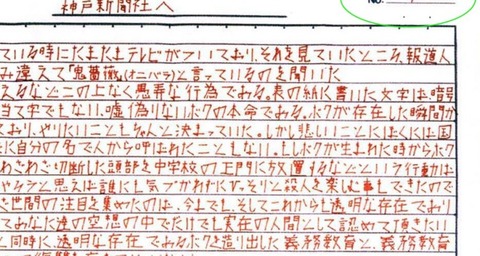 神戸新聞社へ
No.
ている時にたまたまテレビがついており、それを見ていたところ、報道人
み違えて「鬼薔薇」(オニバラ)と言っているのを聞いた
えるなどこの上なく愚弄な行為である。表の紙に書いた文字は暗号
当て字でもない、嘘偽りないボクの本命である。ボクが存在した瞬間か
ており、やりたいこともちゃんと決まっていた。しかし悲しいことにぼくには国
に自分の名で人から呼ばれたこともない。もしボクが生まれた時からボク
わざわざ切断した頭部を中学校の正門に放置するなどという行動は
やろうと思えば誰にも気づかれずにひっそりと殺人を楽しむ事もできたので
世間の注目を集めたのは、今までも、そしてこれからも透明な存在であり
てあなた達の空想の中でだけでも実在の人間として認めて頂きたい
と同時に、透明な存在であるボクを造り出した義務教育と、義務教育